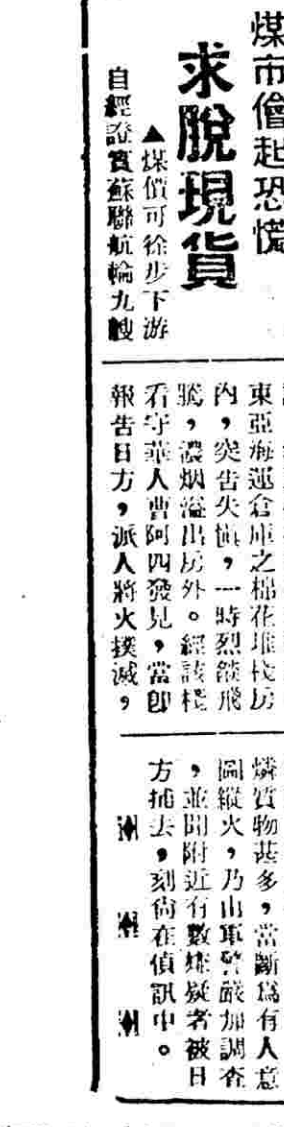 煤市僧起恐慌
求脫現貨
▲煤價可徐步下游
自經證實蘇聯航輪九艘
東亞海運倉庫之棉花堆棧房
內，突告失愼，一時烈燄飛
騰，濃烟溢出房外。經該棧
看守華人曹阿四發見，當卽
報告日方，派人將火撲滅，
燐質物甚多，當斷爲有人意
圖縱火，乃由軍警嚴加調查
，並聞附近有數嫌疑者被日
方捕去，刻尙在偵訊中。